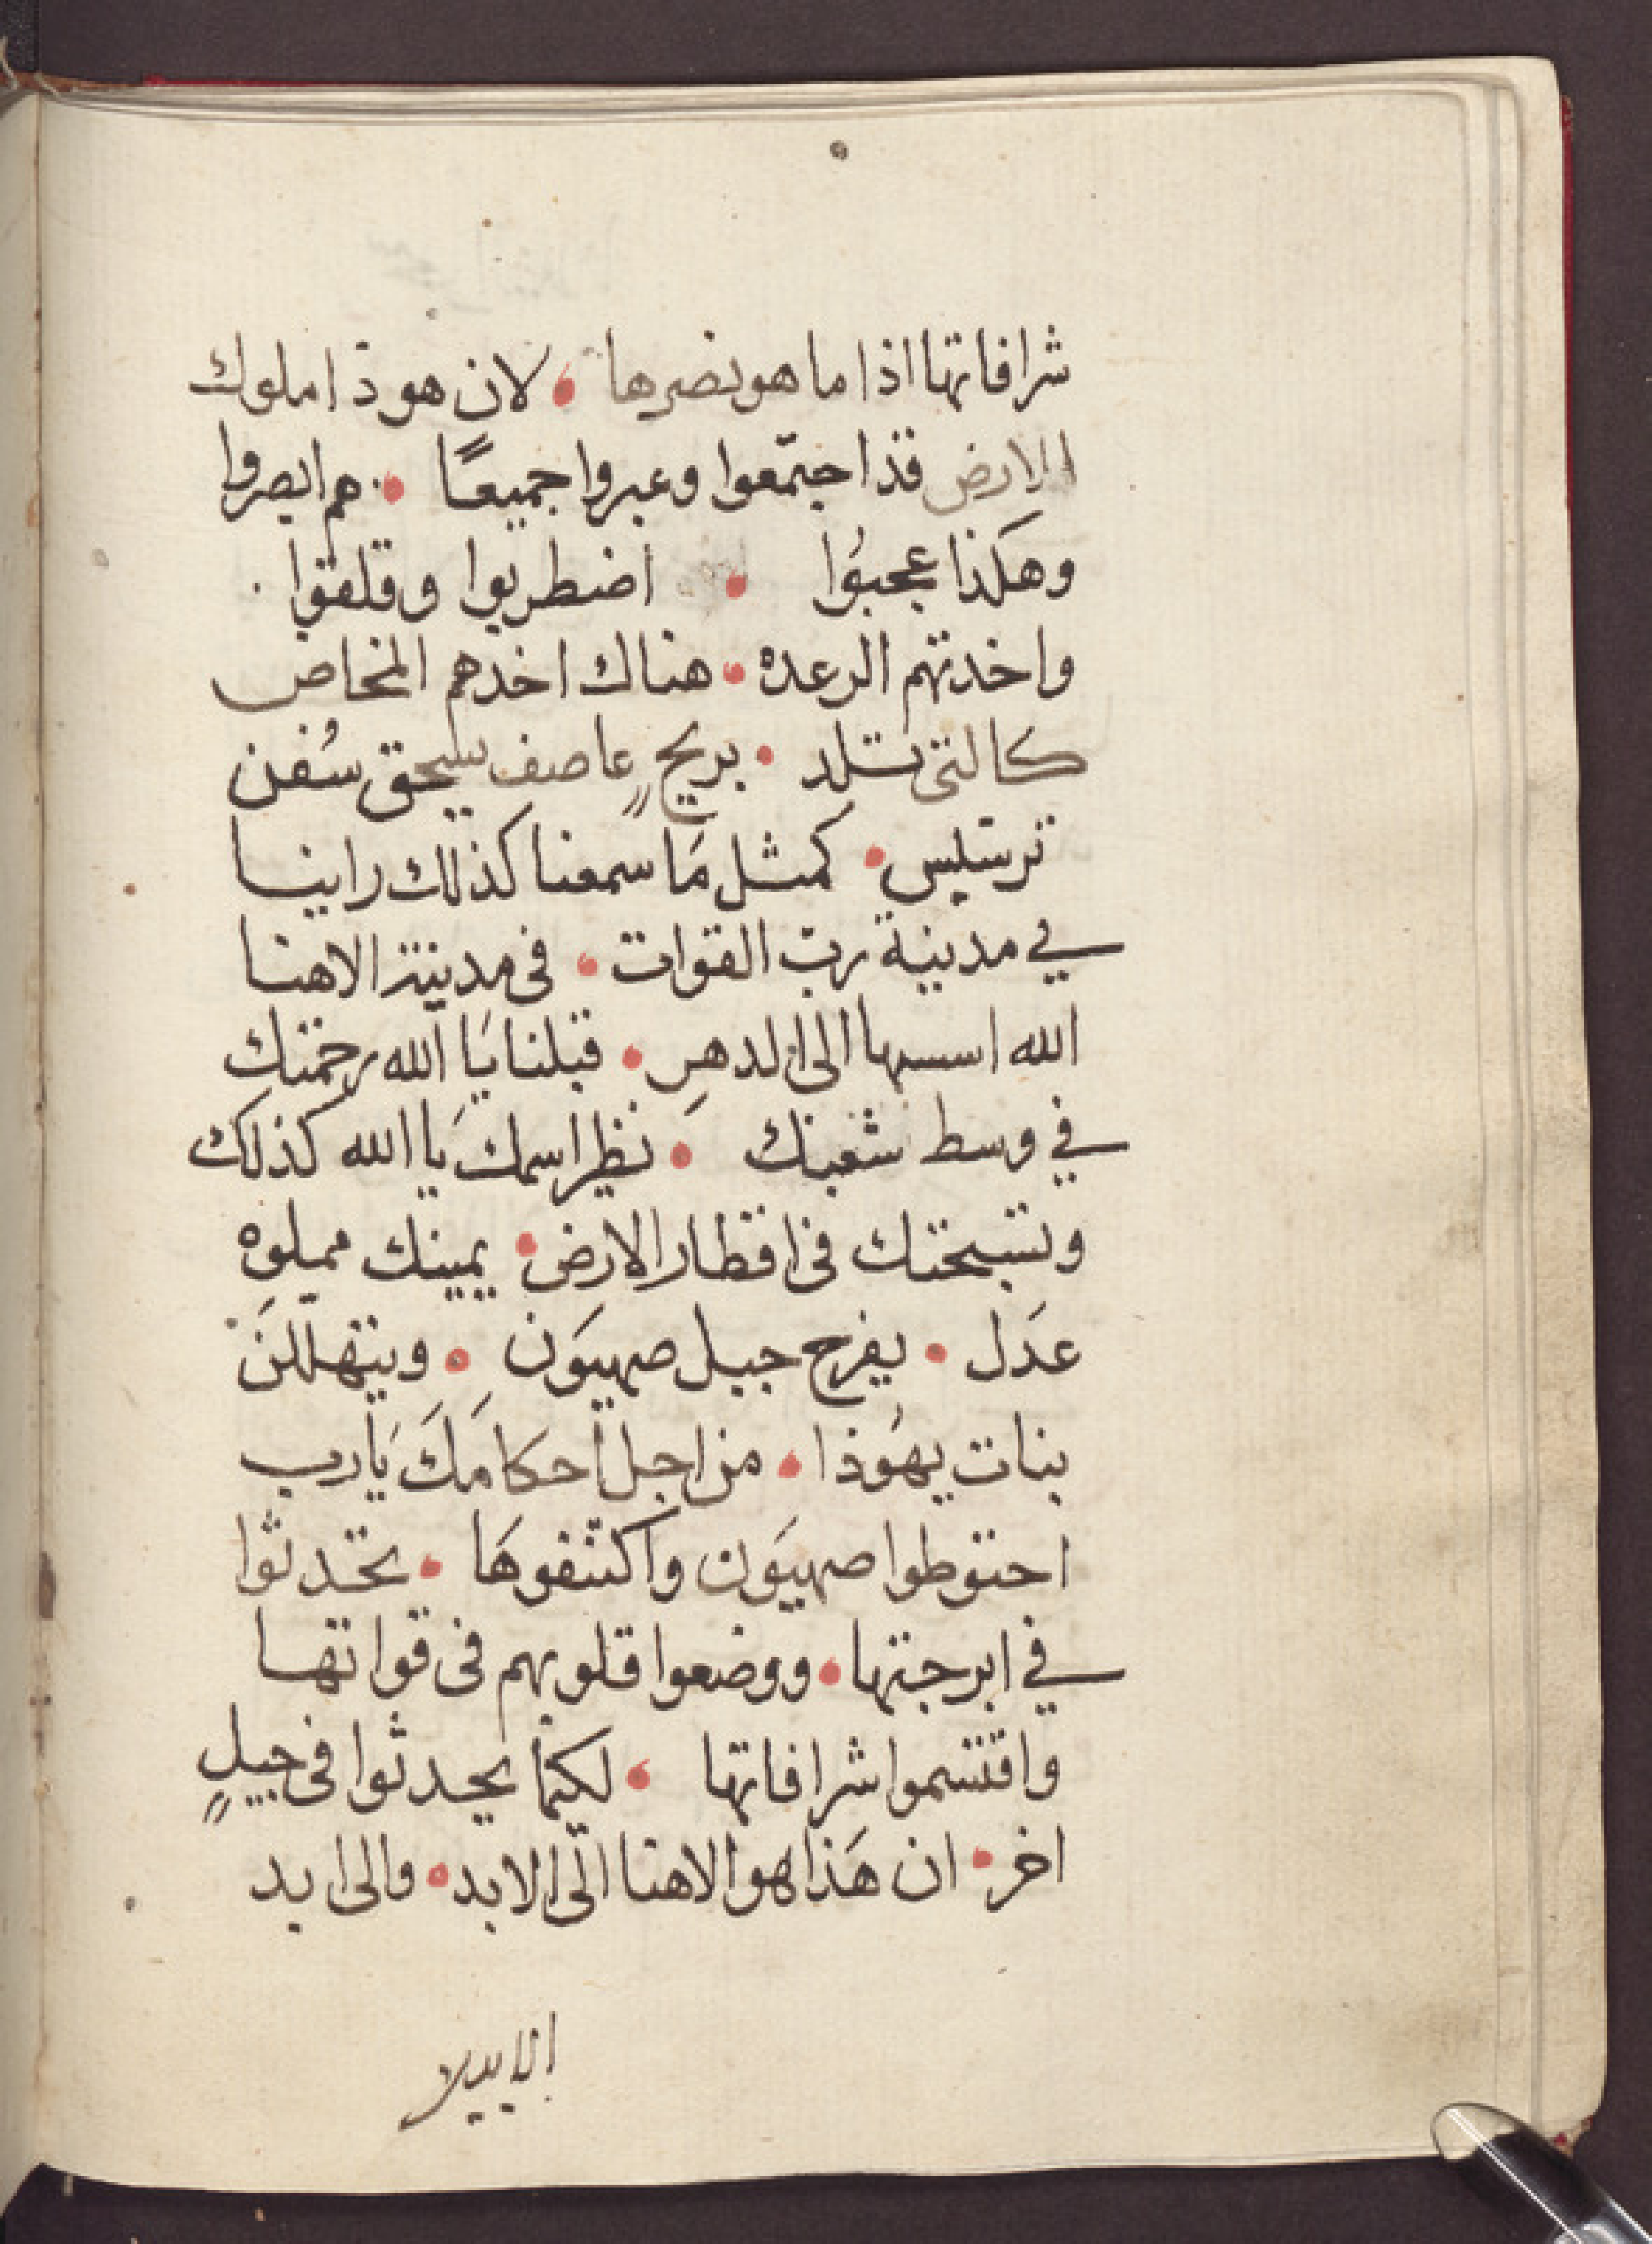 شرافاتها اذا ما هو نصرها • لان هوذا ملوك
الارض قذا جتمعوا وعبروا جميعًا • هم ابصروا
وهكذا عجبُوا • اضطربوا وقلقوا
واخدتهم الرعده • هناك اخدهم المخاض
كالتى تلد • بريحٍ عاصف يسحق سُفن
ترسيس • كمثل مَا سمعنا كذلك راينا
في مدينة ربّ القوات • فى مدينة الاهنا
الله اسسها الى الدهرِ • قبلنا يَا الله رحمتك
في وسط شعبك • نظير اسمك يَا الله كذلك
وتسبحتك فى اقطار الارض • يمينك مملوه
عَدَل • يفرح جبل صهيَون • ويتهللنَ
بنات يهوذا • من اجل احكامَكَ يَارب
احتوطوا صهيَون واكتنفوهَا • تحَدثوا
في ابرجتها • ووضعوا قلوبهم فى قواتها
واقتسموا شرافاتها • لكيما يحدثوا فى جيلٍ
اخر • ان هَذا هو الاهنا الى الابد • والى ابد